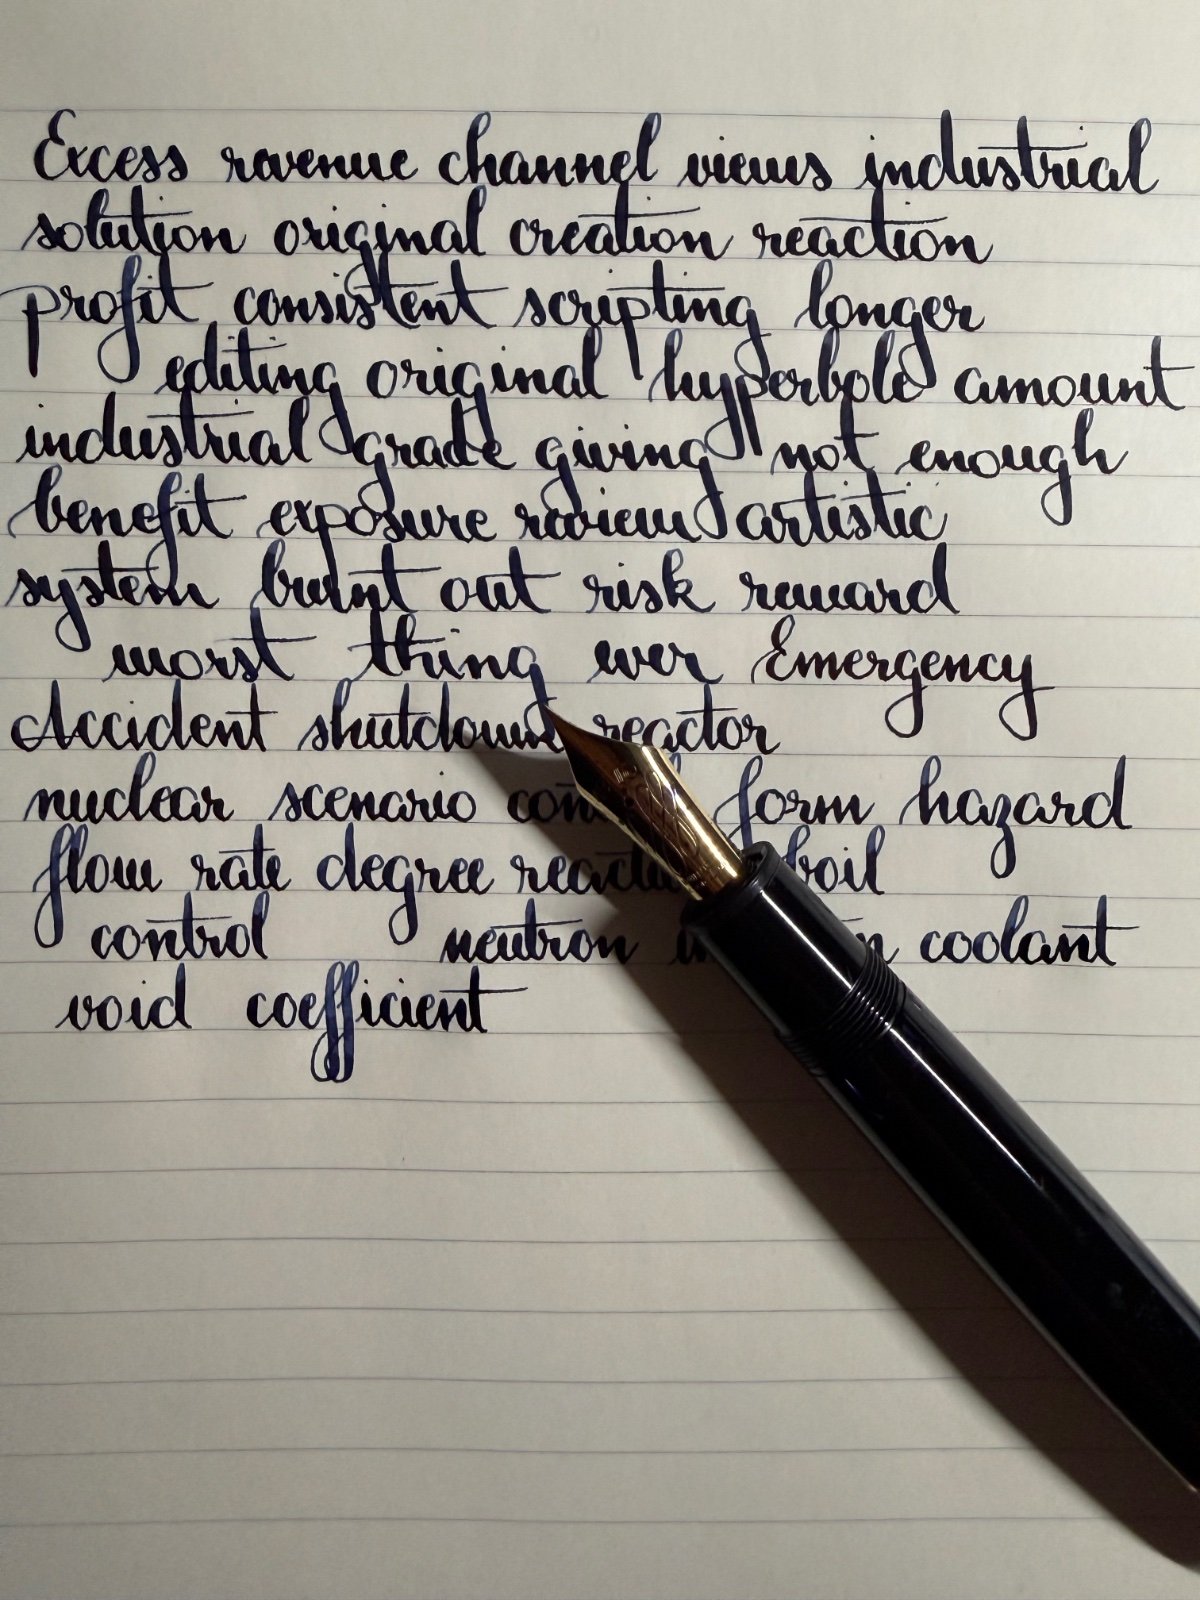 Excess revenue channel views industrial
solution original creation reaction
profit consistent scripting longer
editing original hyperbole amount
industrial grade giving not enough
benefit exposure review artistic
system burnt out risk reward
worst thing ever Emergency
Accident shutdown reactor
nuclear scenario form hazard
flow rate degree boil
control neutron coolant
void coefficient